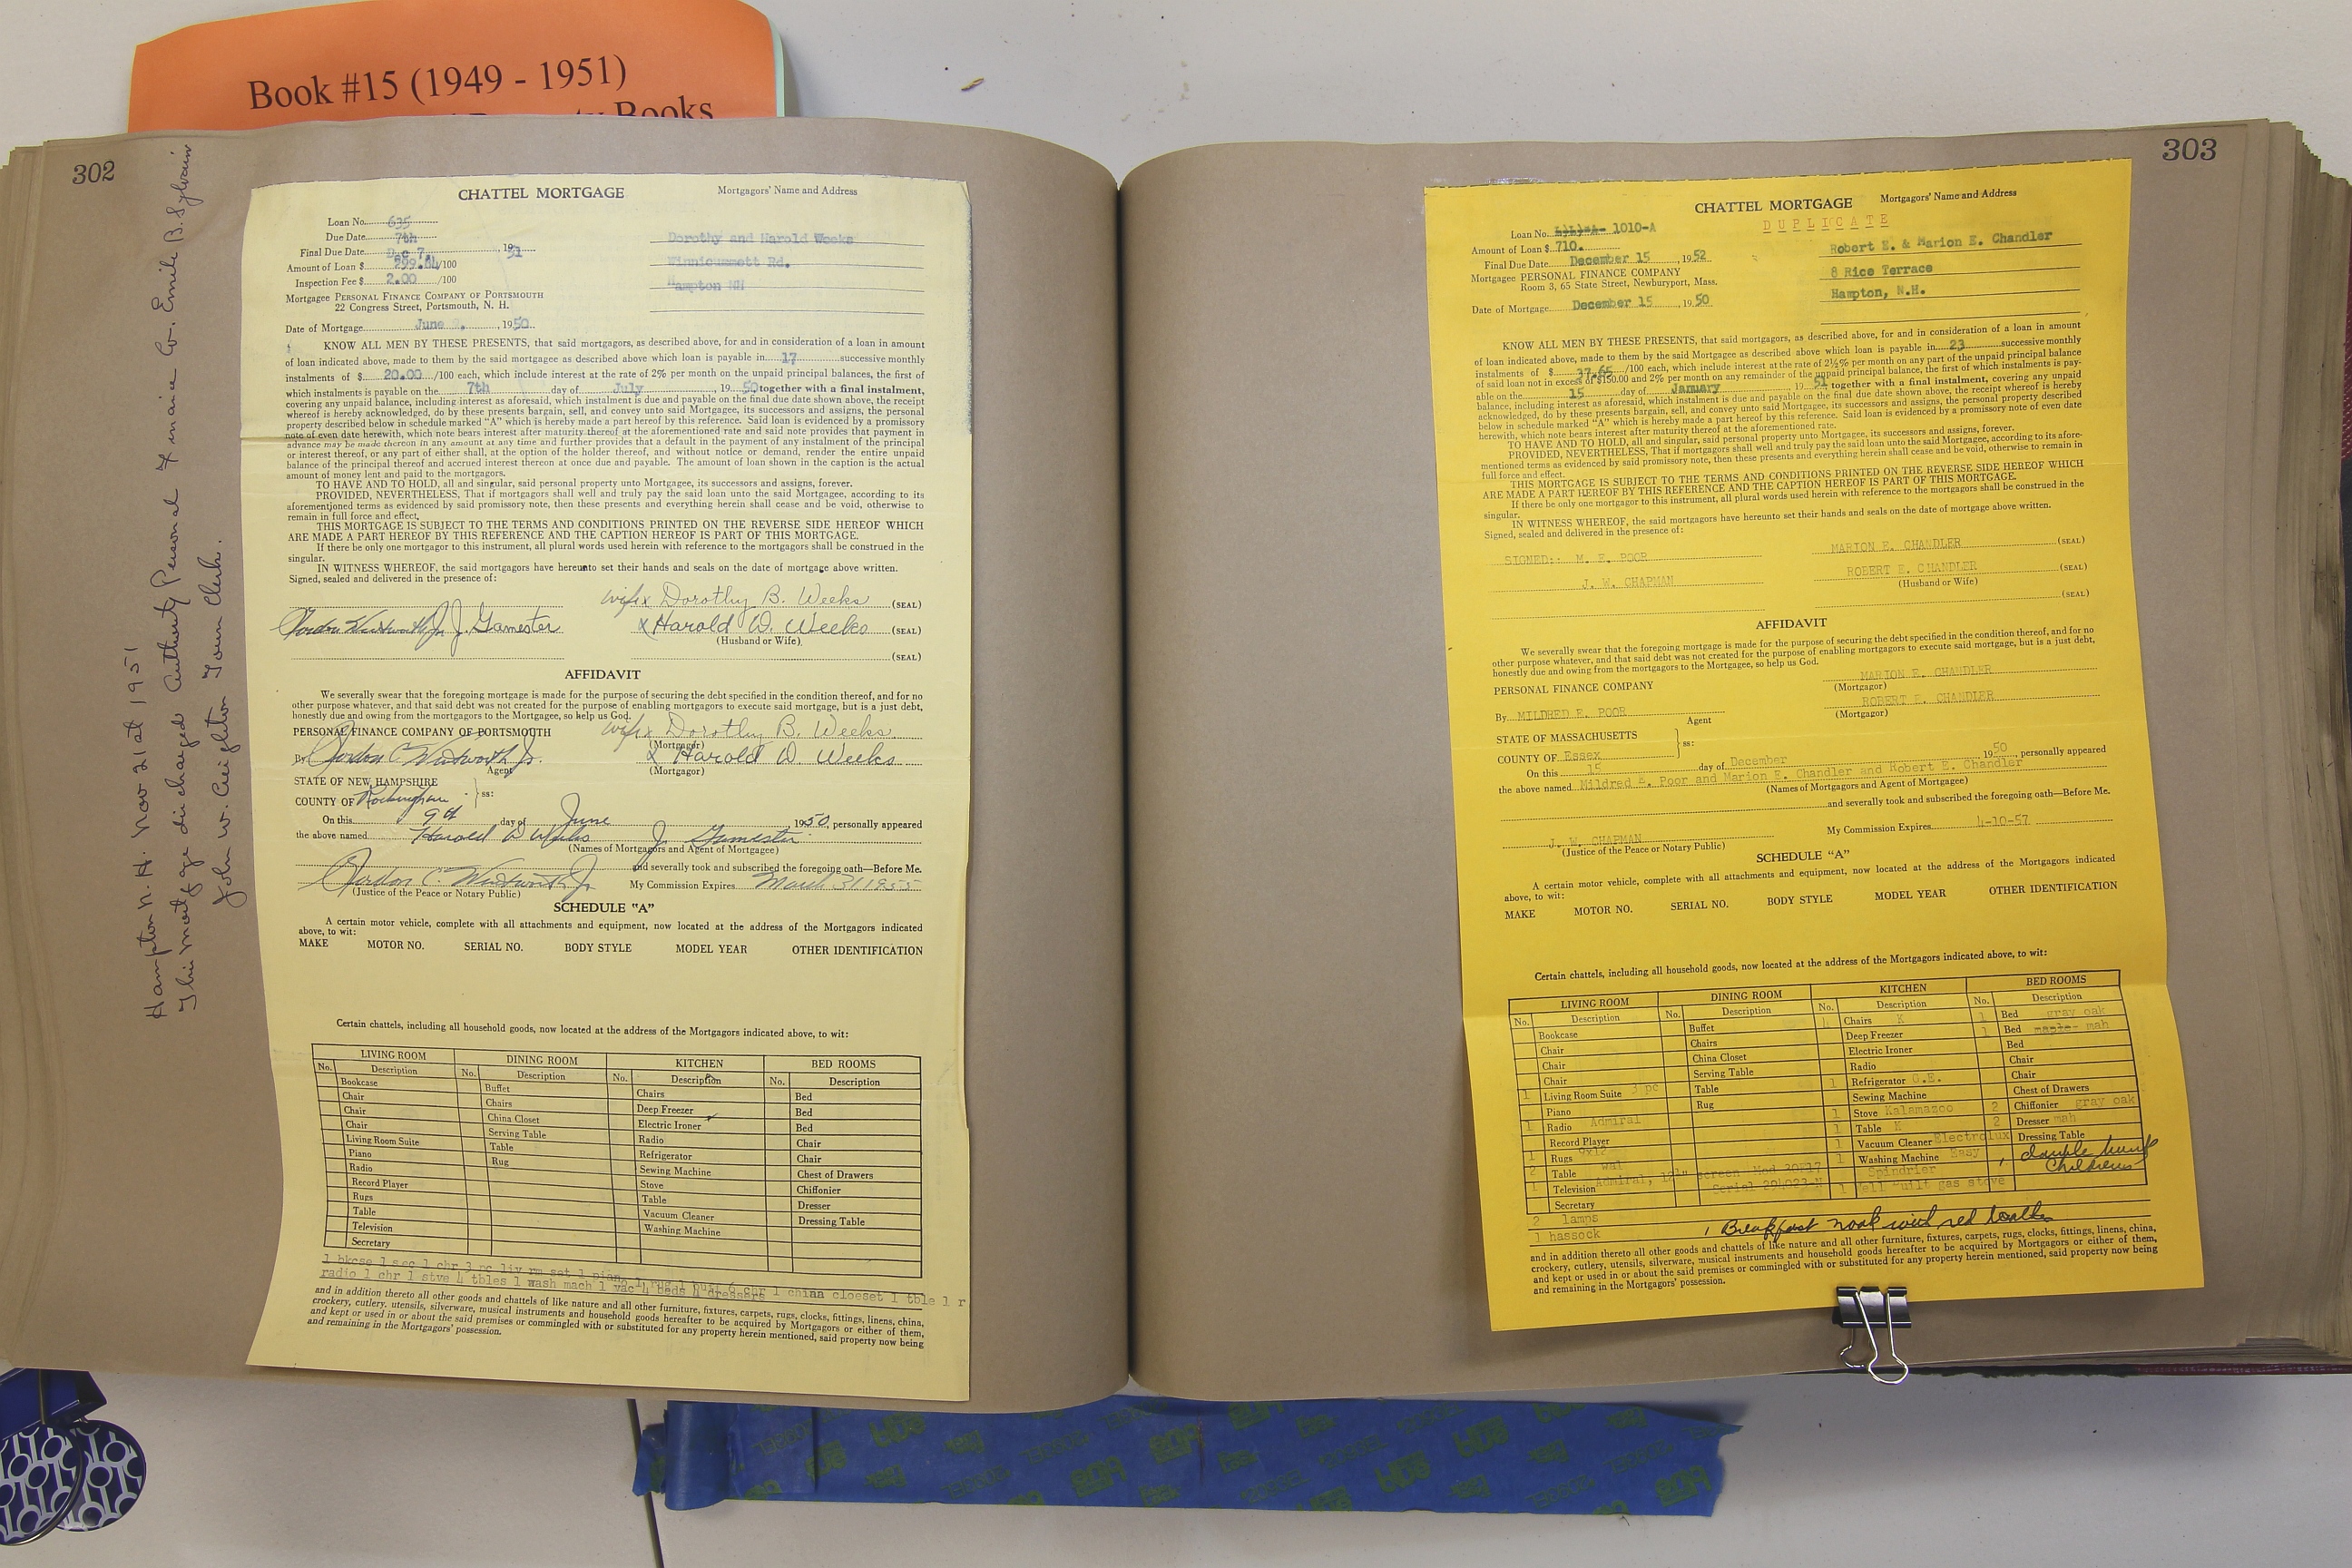 Book #15 (1949 - 1951)
Books
302
Hampton N.H. Nov 21st 1951
This mortgage discharged Authority Personal Finance Co. Emile B. Sylvain
John W. Creighton Town Clerk.
CHATTEL MORTGAGE
Mortgagors' Name and Address
Loan No. 635
Due Date 7th
Final Due Date Dec 7, 1951
Amount of Loan $ 299.04/100
Inspection Fee $ 2.00 /100
Dorothy and Harold Weeks
Winnicummett Rd.
Hampton NH
Mortgagee PERSONAL FINANCE COMPANY OF PORTSMOUTH
22 Congress Street, Portsmouth, N. H.
Date of Mortgage June , 1950
KNOW ALL MEN BY THESE PRESENTS, that said mortgagors, as described above, for and in consideration of a loan in amount
of loan indicated above, made to them by the said mortgagee as described above which loan is payable in 17 successive monthly
instalments of $ 20.00 /100 each, which include interest at the rate of 2% per month on the unpaid principal balances, the first of
which instalments is payable on the 7th day of July , 1950 together with a final instalment,
covering any unpaid balance, including interest as aforesaid, which instalment is due and payable on the final due date shown above, the receipt
whereof is hereby acknowledged, do by these presents bargain, sell, and convey unto said Mortgagee, its successors and assigns, the personal
property described below in schedule marked "A" which is hereby made a part hereof by this reference. Said loan is evidenced by a promissory
note of even date herewith, which note bears interest after maturity thereof at the aforementioned rate and said note provides that payment in
advance may be made thereon in any amount at any time and further provides that a default in the payment of any instalment of the principal
or interest thereof, or any part of either shall, at the option of the holder thereof, and without notice or demand, render the entire unpaid
balance of the principal thereof and accrued interest thereon at once due and payable. The amount of loan shown in the caption is the actual
amount of money lent and paid to the mortgagors.
TO HAVE AND TO HOLD, all and singular, said personal property unto Mortgagee, its successors and assigns, forever.
PROVIDED, NEVERTHELESS, That if mortgagors shall well and truly pay the said loan unto the said Mortgagee, according to its
aforementioned terms as evidenced by said promissory note, then these presents and everything herein shall cease and be void, otherwise to
remain in full force and effect.
THIS MORTGAGE IS SUBJECT TO THE TERMS AND CONDITIONS PRINTED ON THE REVERSE SIDE HEREOF WHICH
ARE MADE A PART HEREOF BY THIS REFERENCE AND THE CAPTION HEREOF IS PART OF THIS MORTGAGE.
If there be only one mortgagor to this instrument, all plural words used herein with reference to the mortgagors shall be construed in the
singular.
IN WITNESS WHEREOF, the said mortgagors have hereunto set their hands and seals on the date of mortgage above written.
Signed, sealed and delivered in the presence of:
wife x Dorothy B. Weeks (SEAL)
Gordon Wentworth Jr J. Gamester x Harold D. Weeks (SEAL)
(Husband or Wife)
(SEAL)
AFFIDAVIT
We severally swear that the foregoing mortgage is made for the purpose of securing the debt specified in the condition thereof, and for no
other purpose whatever, and that said debt was not created for the purpose of enabling mortgagors to execute said mortgage, but is a just debt,
honestly due and owing from the mortgagors to the Mortgagee, so help us God.
PERSONAL FINANCE COMPANY OF PORTSMOUTH wife x Dorothy B. Weeks
(Mortgagor)
By Gordon C Wentworth Jr. x Harold D Weeks
Agent (Mortgagor)
STATE OF NEW HAMPSHIRE
COUNTY OF Rockingham } ss:
On this 9th day of June , 1950, personally appeared
the above named Harold D Weeks J. Gamester
(Names of Mortgagors and Agent of Mortgagee)
and severally took and subscribed the foregoing oath—Before Me.
Gordon C. Wentworth Jr My Commission Expires March 31 1955
(Justice of the Peace or Notary Public)
SCHEDULE "A"
A certain motor vehicle, complete with all attachments and equipment, now located at the address of the Mortgagors indicated
above, to wit:
MAKE MOTOR NO. SERIAL NO. BODY STYLE MODEL YEAR OTHER IDENTIFICATION
Certain chattels, including all household goods, now located at the address of the Mortgagors indicated above, to wit:
LIVING ROOM DINING ROOM KITCHEN BED ROOMS
No. Description No. Description No. Description No. Description
Bookcase Buffet Chairs Bed
Chair Chairs Deep Freezer Bed
Chair China Closet Electric Ironer Bed
Chair Serving Table Radio Chair
Living Room Suite Table Refrigerator Chair
Piano Rug Sewing Machine Chest of Drawers
Radio Stove Chiffonier
Record Player Table Dresser
Rugs Vacuum Cleaner Dressing Table
Table Washing Machine
Television
Secretary
1 bkcse 1 sec 1 chr 3 pc liv rm set 1 piano 1 rug 1 buff 6 chr 1 china cloeset 1 tble 1 r
radio 1 chr 1 stve 4 tbles 1 wash mach 1 vac 4 beds 4 dressers
and in addition thereto all other goods and chattels of like nature and all other furniture, fixtures, carpets, rugs, clocks, fittings, linens, china,
crockery, cutlery, utensils, silverware, musical instruments and household goods hereafter to be acquired by Mortgagors or either of them,
and kept or used in or about the said premises or commingled with or substituted for any property herein mentioned, said property now being
and remaining in the Mortgagors' possession.
303
CHATTEL MORTGAGE
DUPLICATE
Mortgagors' Name and Address
Loan No. 1010-A
Amount of Loan $ 710.
Final Due Date December 15 , 1952
Mortgagee PERSONAL FINANCE COMPANY
Room 3, 65 State Street, Newburyport, Mass.
Date of Mortgage December 15 , 1950
Robert E. & Marion E. Chandler
8 Rice Terrace
Hampton, N.H.
KNOW ALL MEN BY THESE PRESENTS, that said mortgagors, as described above, for and in consideration of a loan in amount
of loan indicated above, made to them by the said Mortgagee as described above which loan is payable in 23 successive monthly
instalments of $ 37.65 /100 each, which include interest at the rate of 2½% per month on any part of the unpaid principal balance
of said loan not in excess of $150.00 and 2% per month on any remainder of the unpaid principal balance, the first of which instalments is pay-
able on the 15 day of January , 1951 together with a final instalment, covering any unpaid
balance, including interest as aforesaid, which instalment is due and payable on the final due date shown above, the receipt whereof is hereby
acknowledged, do by these presents bargain, sell, and convey unto said Mortgagee, its successors and assigns, the personal property described
below in schedule marked "A" which is hereby made a part hereof by this reference. Said loan is evidenced by a promissory note of even date
herewith, which note bears interest after maturity thereof at the aforementioned rate.
TO HAVE AND TO HOLD, all and singular, said personal property unto Mortgagee, its successors and assigns, forever.
PROVIDED, NEVERTHELESS, That if mortgagors shall well and truly pay the said loan unto the said Mortgagee, according to its afore-
mentioned terms as evidenced by said promissory note, then these presents and everything herein shall cease and be void, otherwise to remain in
full force and effect.
THIS MORTGAGE IS SUBJECT TO THE TERMS AND CONDITIONS PRINTED ON THE REVERSE SIDE HEREOF WHICH
ARE MADE A PART HEREOF BY THIS REFERENCE AND THE CAPTION HEREOF IS PART OF THIS MORTGAGE.
If there be only one mortgagor to this instrument, all plural words used herein with reference to the mortgagors shall be construed in the
singular.
IN WITNESS WHEREOF, the said mortgagors have hereunto set their hands and seals on the date of mortgage above written.
Signed, sealed and delivered in the presence of:
SIGNED:: M. E. POOR MARION E. CHANDLER (SEAL)
J. W. CHAPMAN ROBERT E. CHANDLER (SEAL)
(Husband or Wife)
(SEAL)
AFFIDAVIT
We severally swear that the foregoing mortgage is made for the purpose of securing the debt specified in the condition thereof, and for no
other purpose whatever, and that said debt was not created for the purpose of enabling mortgagors to execute said mortgage, but is a just debt,
honestly due and owing from the mortgagors to the Mortgagee, so help us God.
PERSONAL FINANCE COMPANY MARION E. CHANDLER
(Mortgagor)
By MILDRED E. POOR ROBERT E. CHANDLER
Agent (Mortgagor)
STATE OF MASSACHUSETTS
COUNTY OF Essex } ss:
On this 15 day of December 1950, personally appeared
the above named Mildred E. Poor and Marion E. Chandler and Robert E. Chandler
(Names of Mortgagors and Agent of Mortgagee)
and severally took and subscribed the foregoing oath—Before Me.
J. W. CHAPMAN My Commission Expires 4-10-57
(Justice of the Peace or Notary Public)
SCHEDULE "A"
A certain motor vehicle, complete with all attachments and equipment, now located at the address of the Mortgagors indicated
above, to wit:
MAKE MOTOR NO. SERIAL NO. BODY STYLE MODEL YEAR OTHER IDENTIFICATION
Certain chattels, including all household goods, now located at the address of the Mortgagors indicated above, to wit:
LIVING ROOM DINING ROOM KITCHEN BED ROOMS
No. Description No. Description No. Description No. Description
Bookcase Buffet 4 Chairs K 1 Bed gray oak
Chair Chairs Deep Freezer 1 Bed maple mah
Chair China Closet Electric Ironer Bed
Chair Serving Table Radio Chair
1 Living Room Suite 3 pc Table 1 Refrigerator G.E. Chair
Piano Rug Sewing Machine Chest of Drawers
1 Radio Admiral 1 Stove Kalamazoo 2 Chiffonier gray oak
Record Player 1 Table K 2 Dresser mah
1 Rugs 9x12 1 Vacuum Cleaner Electrolux Dressing Table
2 Table wal 1 Washing Machine Easy 1 double bunk
1 Television Admiral, 12½" screen Mod 30F17 Spindrier Childrens
Secretary Serial 294023-N 1 Well Built gas stove
2 lamps
1 hassock 1 Breakfast nook with red leather
and in addition thereto all other goods and chattels of like nature and all other furniture, fixtures, carpets, rugs, clocks, fittings, linens, china,
crockery, cutlery, utensils, silverware, musical instruments and household goods hereafter to be acquired by Mortgagors or either of them,
and kept or used in or about the said premises or commingled with or substituted for any property herein mentioned, said property now being
and remaining in the Mortgagors' possession.